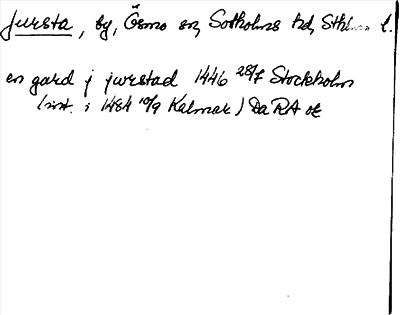 Jursta, by, Ösmo sn, Sotholms hd, Sthlms l.
en gard j jurstad 1446 28/7 Stockholm
(int. i 1484 10/9 Kalmar) Da RA or